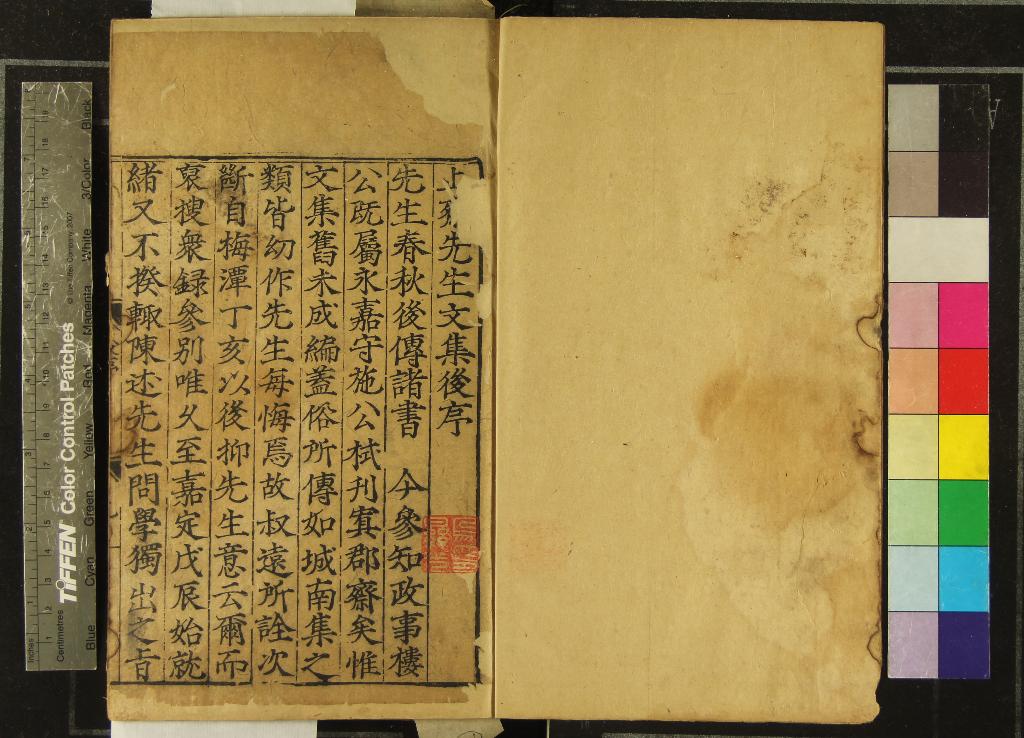 止齋先生文集後序
先生春秋後傳諸書 今參知政事樓
公既屬永嘉守施公栻刊寘郡齋矣惟
文集舊未成編蓋俗所傳如城南集之
類皆幼作先生每悔焉故叔遠所詮次
斷自梅潭丁亥以後抑先生意云爾而
裒捜衆録參別唯乆至嘉定戊辰始就
緒又不揆輙陳述先生問學獨出之旨
Inches
Centimetres
TIFFEN Color Control Patches
© The Tiffen Company, 2007
Blue Cyan Green Yellow Red Magenta White 3/Color Black
A